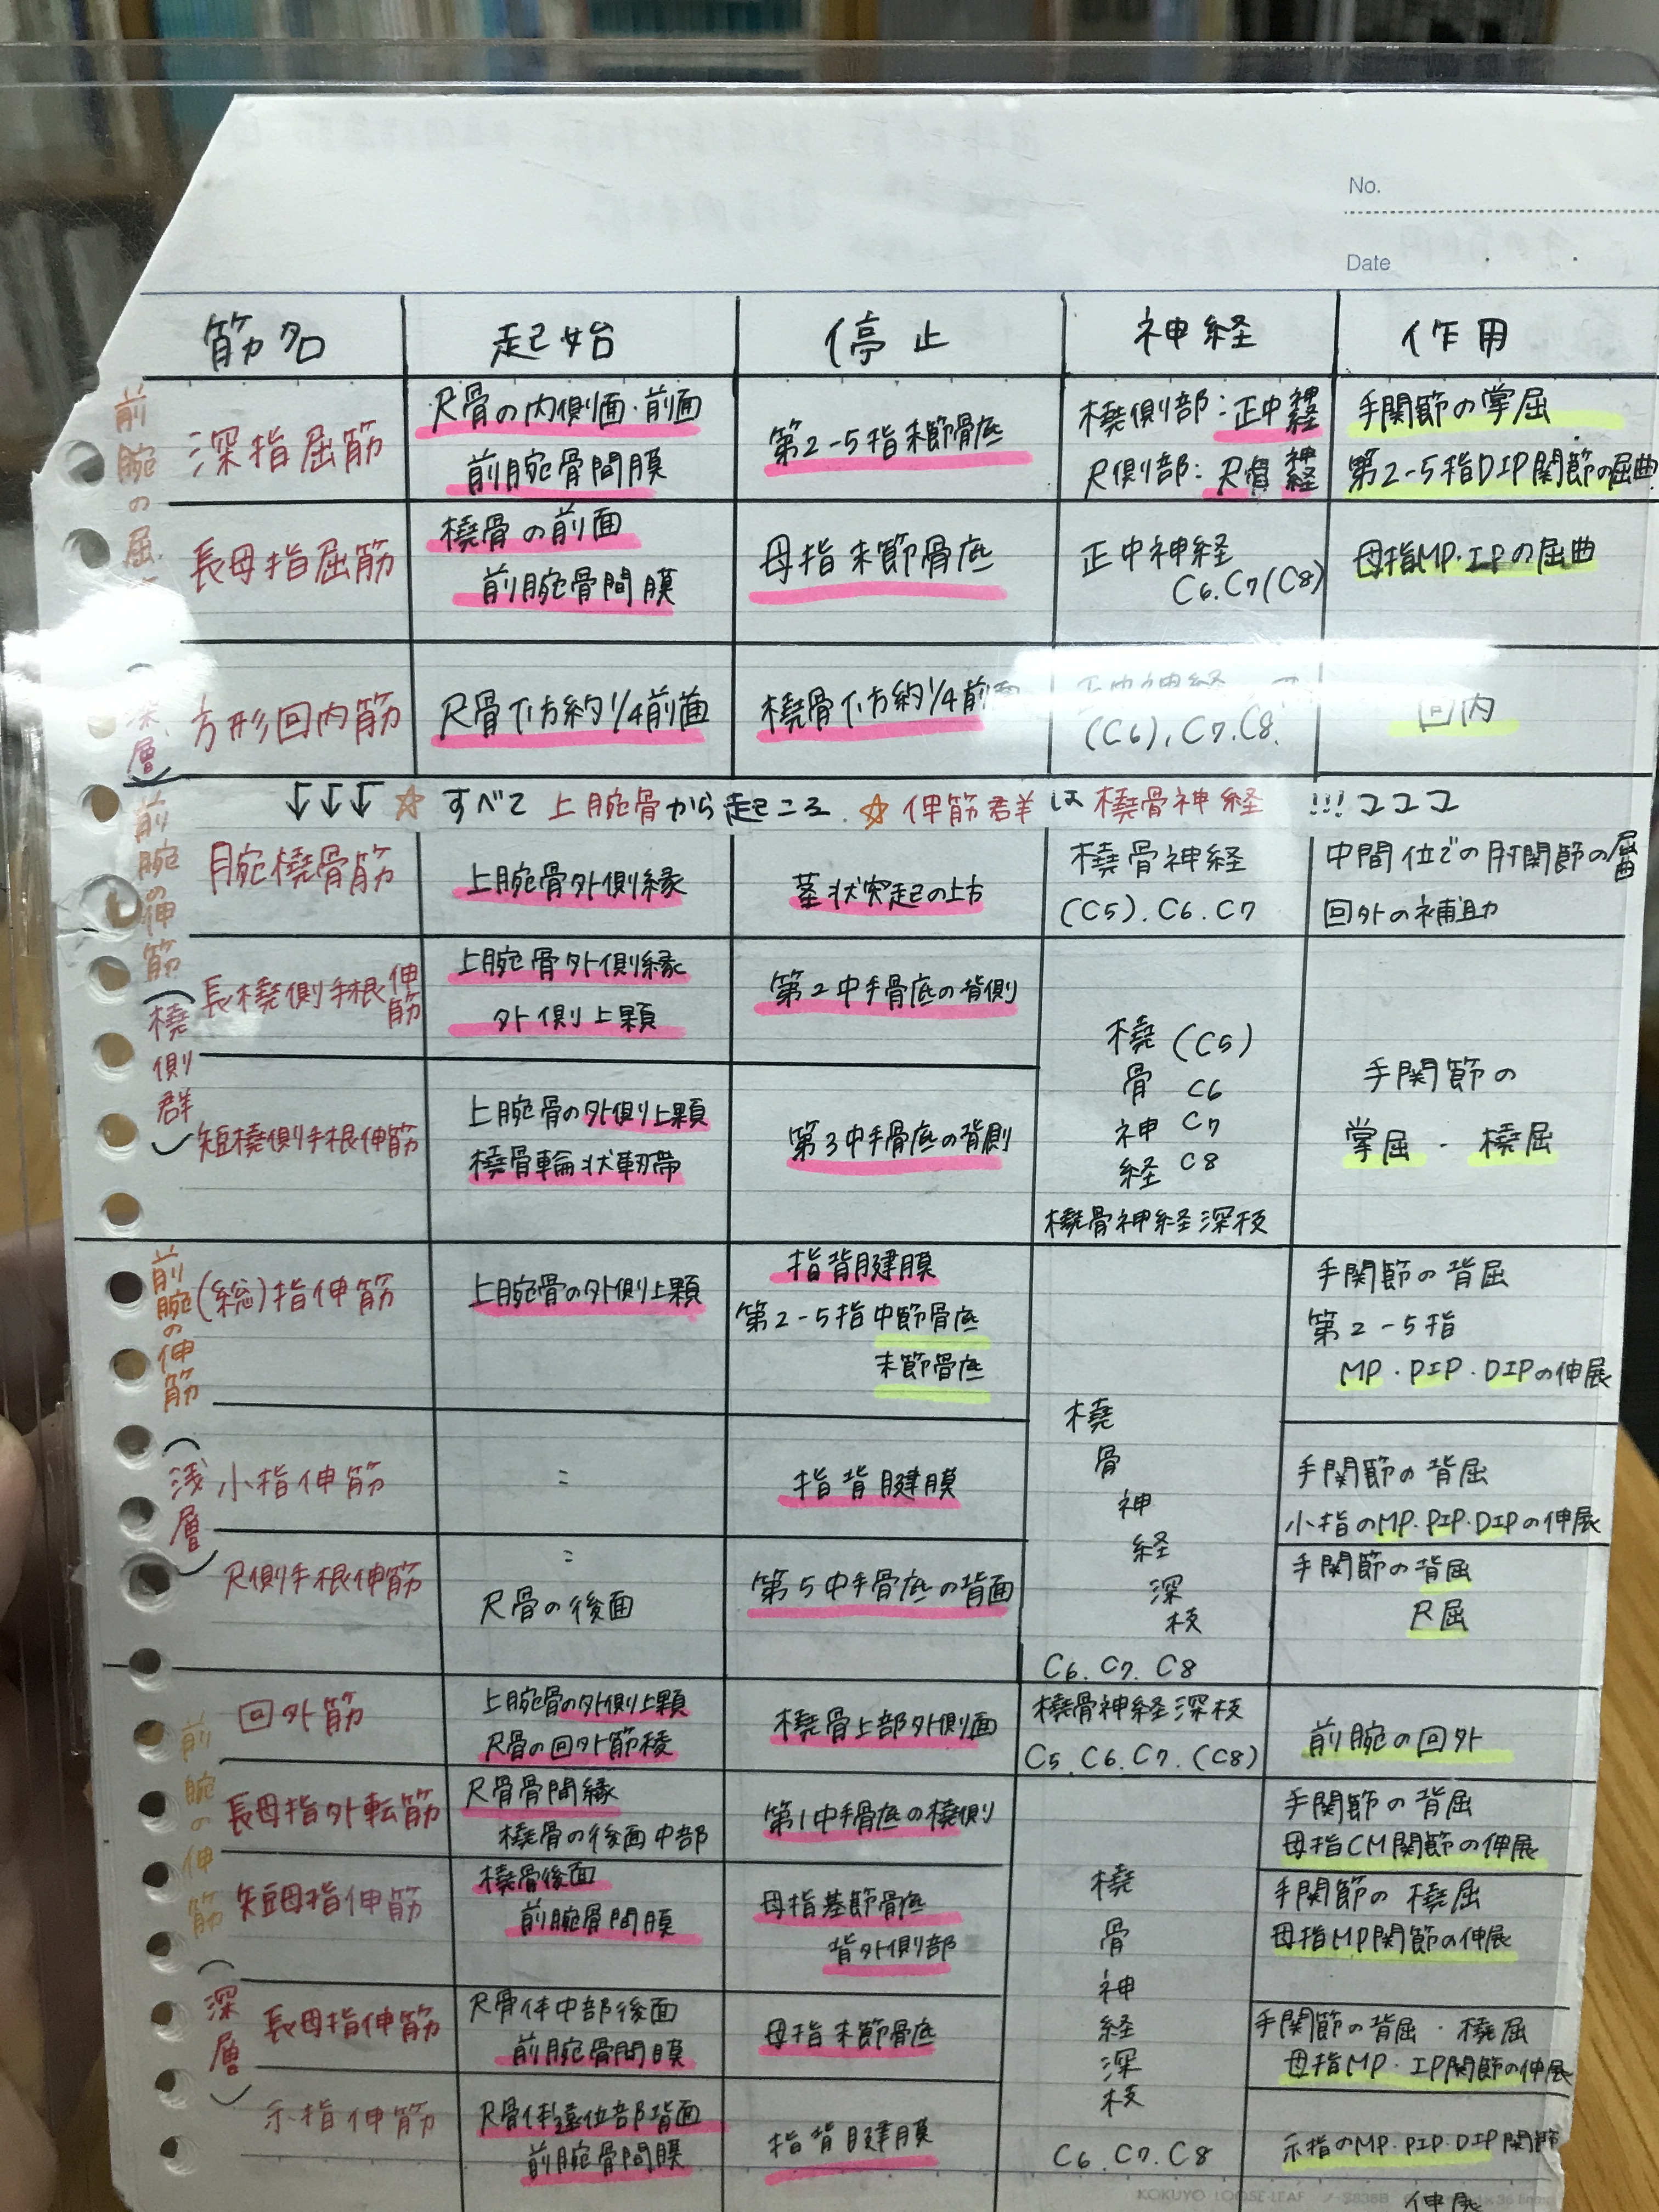 No.
Date
筋名 起始 停止 神経 作用
前腕の屈
(深層)
深指屈筋
尺骨の内側面・前面
前腕骨間膜
第2-5指末節骨底
橈側部:正中神経
尺側部:尺骨神経
手関節の掌屈
第2-5指DIP関節の屈曲
長母指屈筋
橈骨の前面
前腕骨間膜
母指末節骨底
正中神経
C6.C7(C8)
母指MP・IPの屈曲
方形回内筋
尺骨下方約1/4前面
橈骨下方約1/4前面
正中神経
(C6),C7.C8.
回内
↓↓↓☆ すべて上腕骨から起こる ☆ 伸筋群は橈骨神経 !!!ココココ
前腕の伸筋
(橈側群)
腕橈骨筋
上腕骨外側縁
茎状突起の上方
橈骨神経
(C5).C6.C7
中間位での肘関節の屈曲
回外の補助
長橈側手根伸筋
上腕骨外側縁
外側上顆
第2中手骨底の背側
短橈側手根伸筋
上腕骨の外側上顆
橈骨輪状靭帯
第3中手骨底の背側
橈骨神経
(C5)
C6
C7
C8
橈骨神経深枝
手関節の
掌屈・橈屈
前腕の伸筋
(浅層)
(総)指伸筋
上腕骨の外側上顆
指背腱膜
第2-5指中節骨底
末節骨底
手関節の背屈
第2-5指
MP・PIP・DIPの伸展
小指伸筋
〃
指背腱膜
手関節の背屈
小指のMP.PIP.DIPの伸展
尺側手根伸筋
〃
尺骨の後面
第5中手骨底の背面
橈骨神経深枝
C6.C7.C8
手関節の背屈
尺屈
前腕の伸筋
(深層)
回外筋
上腕骨の外側上顆
尺骨の回外筋稜
橈骨上部外側面
橈骨神経深枝
C5.C6.C7.(C8)
前腕の回外
長母指外転筋
尺骨骨間縁
橈骨の後面中部
第1中手骨底の橈側
手関節の背屈
母指CM関節の伸展
短母指伸筋
橈骨後面
前腕骨間膜
母指基節骨底
背外側部
手関節の橈屈
母指MP関節の伸展
長母指伸筋
尺骨体中部後面
前腕骨間膜
母指末節骨底
手関節の背屈・橈屈
母指MP・IP関節の伸展
示指伸筋
尺骨体遠位部背面
前腕骨間膜
指背腱膜
橈骨神経深枝
C6.C7.C8
示指のMP.PIP.DIP関節
伸展
KOKUYO LOOSE-LEAF